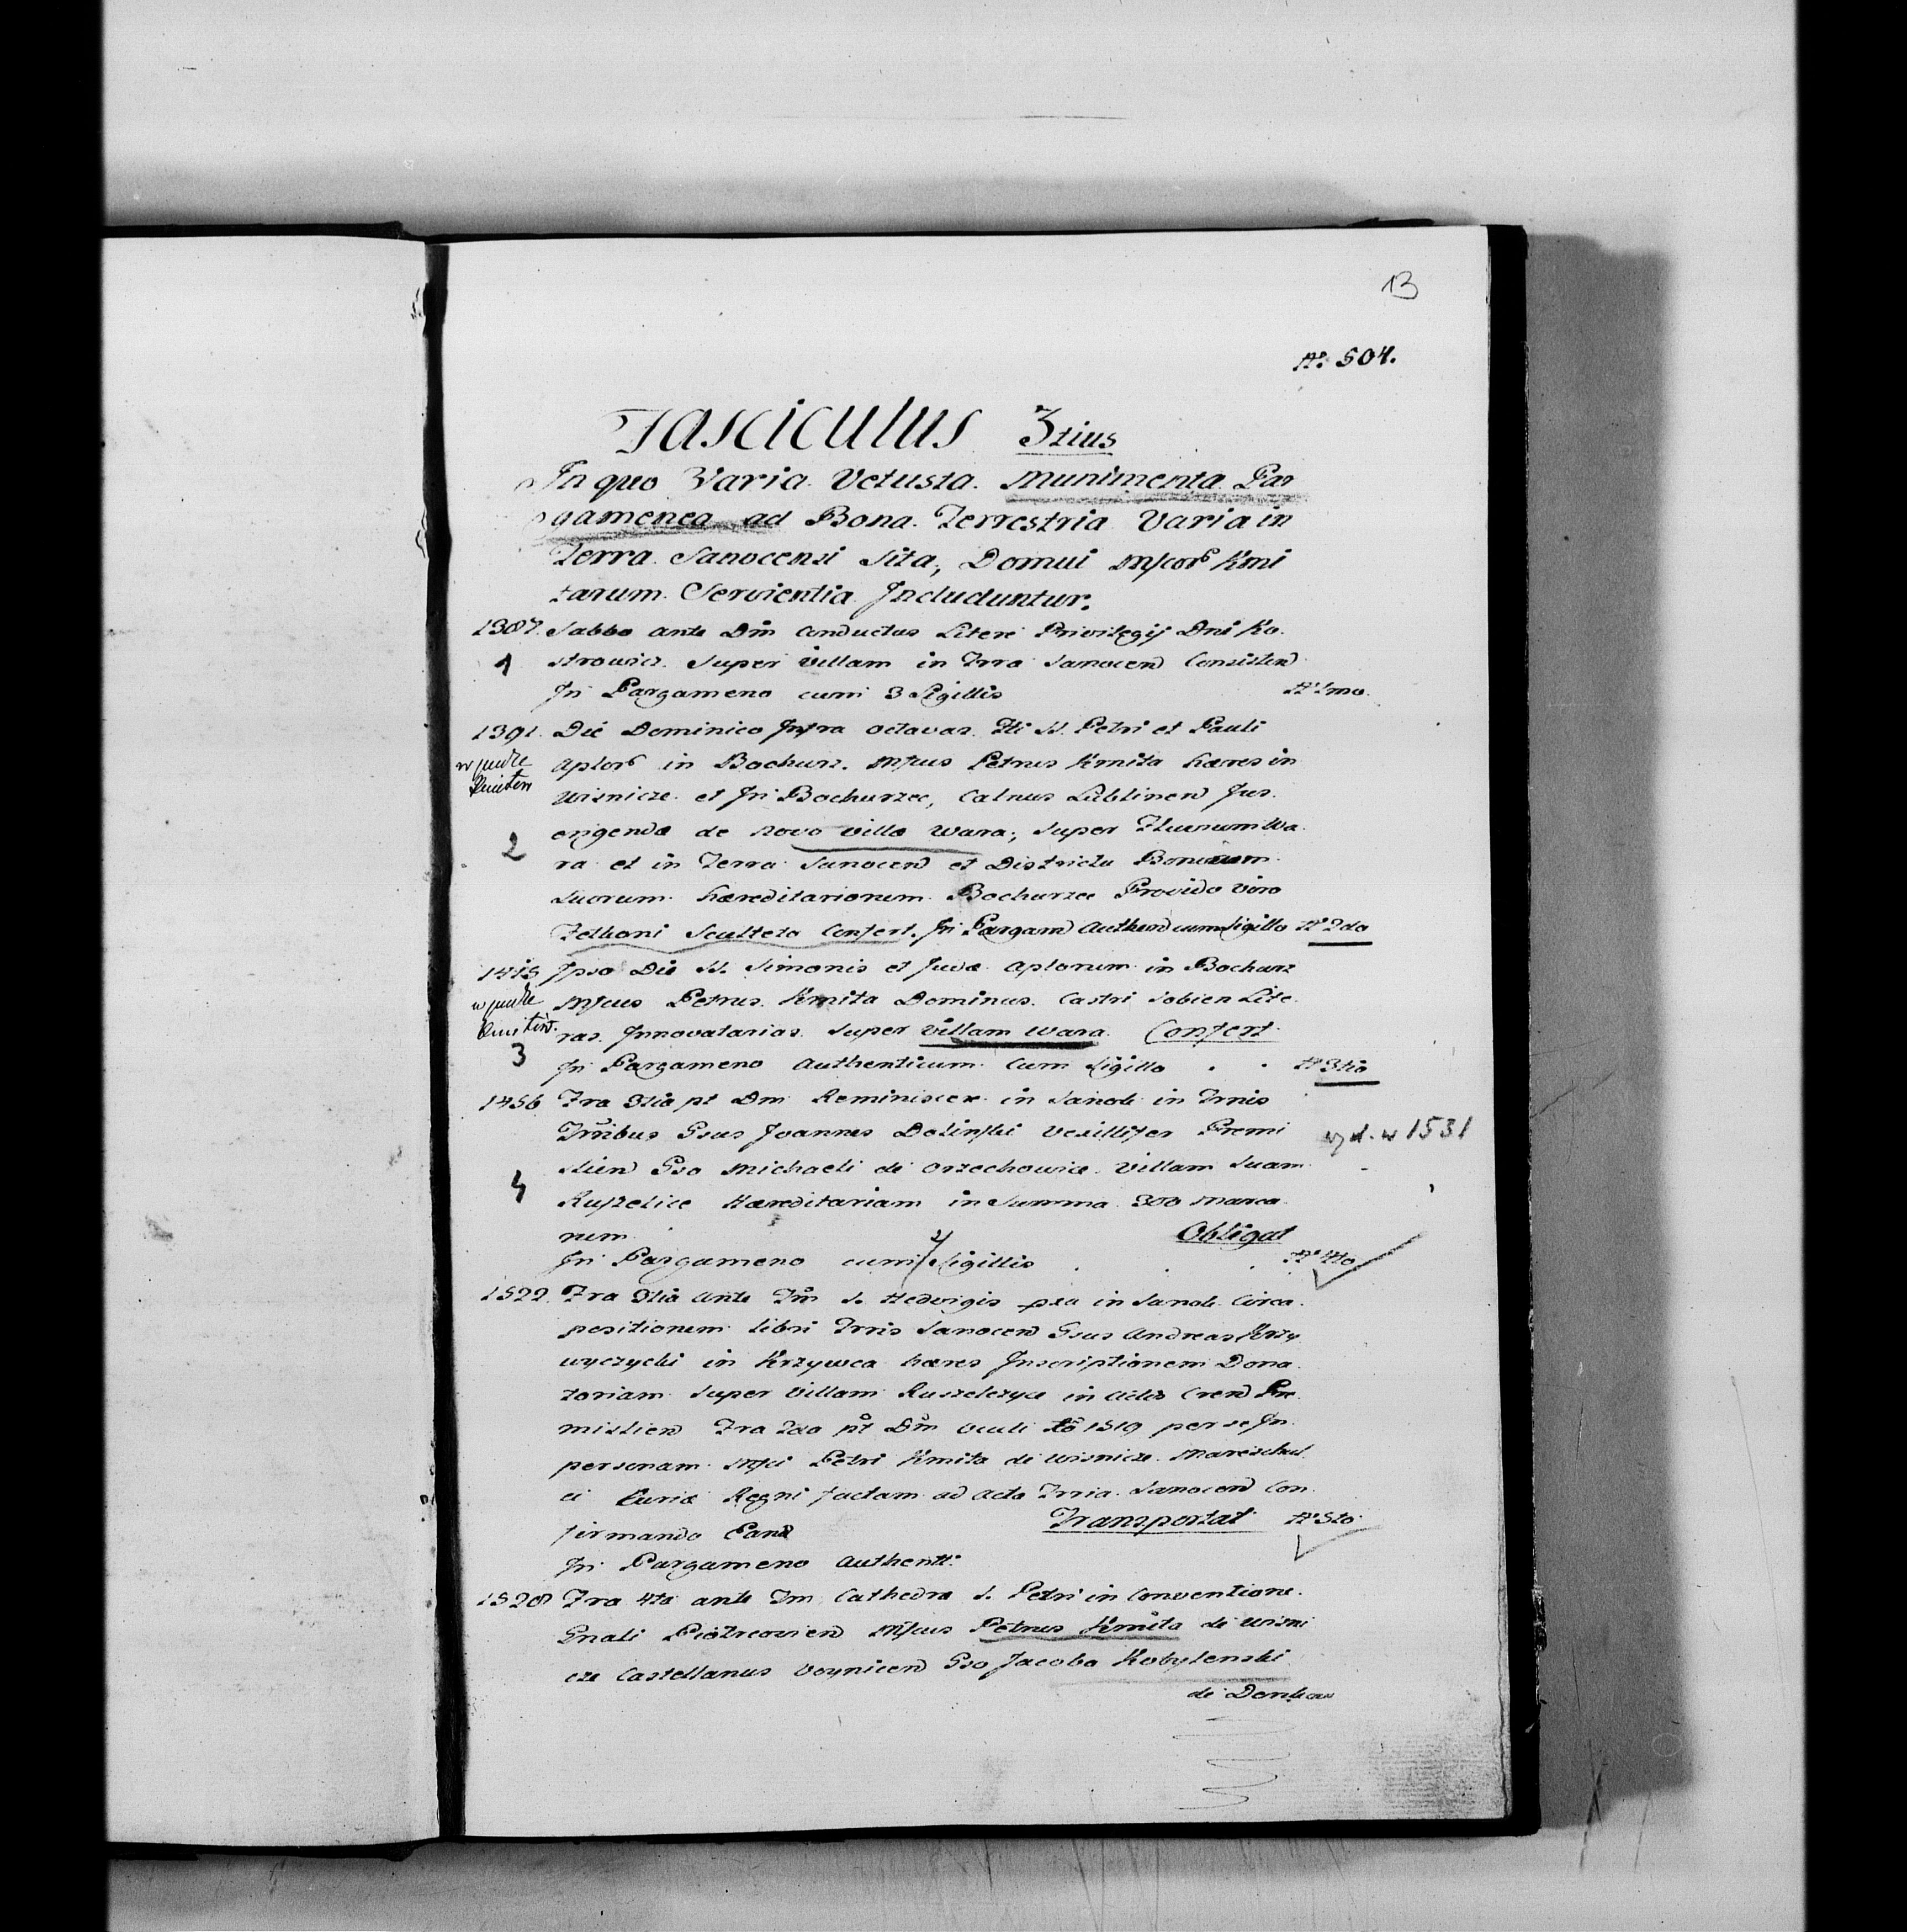 13
Nº 504.
Fasciculus 3tius
In quo Varia Vetusta Munimenta Par
gamenea ad Bona Terrestria Varia in
Terra Sanocensi Sita, Domui Mfcor Kmi
tarum Servientia Includuntur.
1387. Sabbo ante Dm Conductus Litere Privilegij Dni Ko
1 strowicz Super Villam in Trra Sanocen Consisten
In Pargameno cum 3 Sigillis Nº 1mo.
1391. Die Dominico Infra octavas Fti SS. Petri et Pauli
Aplor in Bochurz. Mfcus Petrus Kmita Hæres in
Wisnicze et In Bochurzec, Calnus Lublinen Jus
erigendæ de Novo Villæ Wara, Super Fluvium Wa
2 ra et in Terra Sanocen et Districtu Bonorum
Suorum Hæreditariorum Bochurzec Provido Viro
Fethoni Sculteto Confert. In Pargam Authen cum Sigillo Nº 2do
Ipso Die SS. Simonis et Judæ Aplorum in Bochurz
Mfcus Petrus Kmita Dominus Castri Sobien Lite
ras Innovatorias Super Villam Wara Confert
3 In Pargameno Authenticum Cum Sigillo . . Nº 3tio
1456 Fra 3tia pt Dm Reminiscere in Sanok in Trnis
Trmibus Gsus Joannes Dolinski Vexillifer Premi
w 1531
slien Gso Michaeli de Orzechowice Villam Suam
4 Ruszelice Hæreditariam in Summa 300 Marca
rum Obligat
In Pargameno cum 2 Sigillis . . . Nº 4to
1522. Fra 3tia ante Fm S. Hedvigis in Sanok Circa
positionem Libri Trris Sanocen Gsus Andreas Krzy
wyczycki in Krzywcza hæres Inscriptionem Dona
toriam Super Villam Ruszelczyce in Actis Cren Pre
mislien Fra 2da pt Dm Oculi 1519 per se In
personam Mfci Petri Kmita de Wisnicze Mareschal
ci Curiæ Regni factam ad Acta Trria Sanocen Con
firmando Transportat Nº 5to
In Pargameno Authentt.
1528 Fra 4ta ante Fm Cathedræ S. Petri in Conventione
Gnali Piotrcovien Mfcus Petrus Kmita de Wisni
cze Castellanus Voynicen Gso Jacobo Kobylenski
de